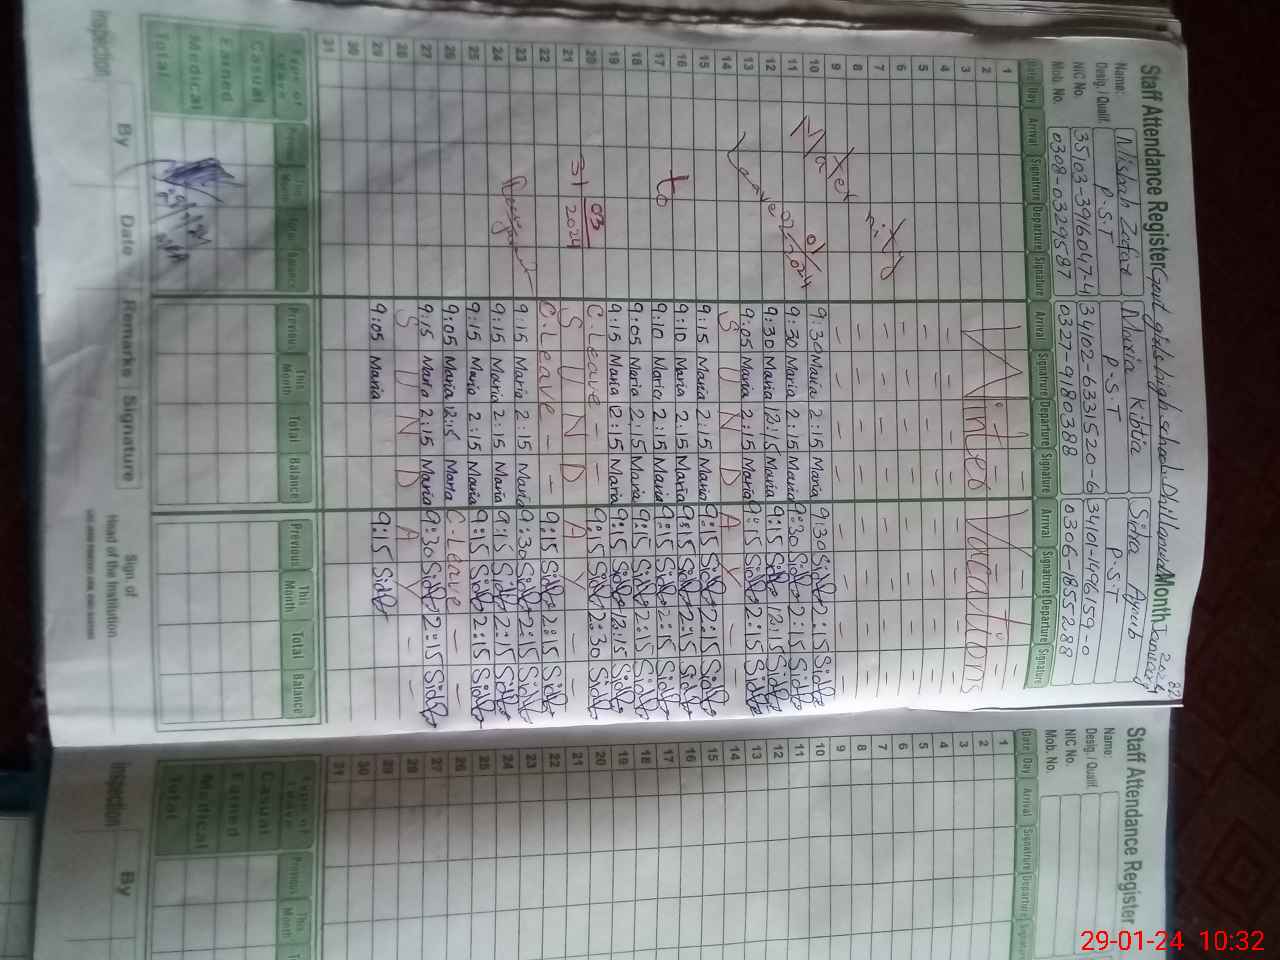 Staff Attendance Register Govt girls high school Dhillanwali Month January 2024
82
Name: Nisbah Zafar Maria Kibtia Sidra Ayub
Desig. / Qualif. P.S.T P.S.T P.S.T
NIC No. 35103-3916047-4 34102-6331520-6 3401-1496159-0
Mob. No. 0308-0329587 0327-9180388 0306-1855288
Date Day Arrival Signatrure Departure Signature Arrival Signatrure Departure Signature Arrival Signatrure Departure Signature
1 - -
2 Winter Vacations
3
4 - - - - - - - -
5 - - - - - - - -
6 - - - - - - - -
7 - - - - - - - -
8 - - - - - - - -
9 - - - - - - - -
Maternity
Leave 01/01/2024
to
31 03 2024
10 9:30 Maria 2:15 Maria 9:30 Sidra 2:15 Sidra
11 9:30 Maria 2:15 Maria 9:30 Sidra 2:15 Sidra
12 9:30 Maria 12:15 Maria 9:15 Sidra 12:15 Sidra
13 9:05 Maria 2:15 Maria 9:15 Sidra 2:15 Sidra
14 S U N D A Y - -
15 9:15 Maria 2:15 Maria 9:15 Sidra 2:15 Sidra
16 9:10 Maria 2:15 Maria 9:15 Sidra 2:15 Sidra
17 9:10 Maria 2:15 Maria 9:15 Sidra 2:15 Sidra
18 9:05 Maria 2:15 Maria 9:15 Sidra 2:15 Sidra
19 9:15 Maria 12:15 Maria 9:15 Sidra 12:15 Sidra
20 C.Leave - - 9:15 Sidra 2:30 Sidra
21 S U N D A Y - -
22 C.Leave - - 9:15 Sidra 2:15 Sidra
23 9:15 Maria 2:15 Maria 9:30 Sidra 2:15 Sidra
24 9:15 Maria 2:15 Maria 9:15 Sidra 2:15 Sidra
25 9:15 Maria 2:15 Maria 9:15 Sidra 2:15 Sidra
26 9:05 Maria 12:15 Maria C.Leave - -
27 9:15 Maria 2:15 Maria 9:30 Sidra 2:15 Sidra
28 S U N D A Y - -
29 9:05 Maria 9:15 Sidra
30
31
Type of Leave Previous This Month Total Balance Previous This Month Total Balance Previous This Month Total Balance
Casual
Earned
Medical
Total
Inspection By Date Remarks Signature Sign. of
Head of the Institution
Staff Attendance Register
Name:
Desig. / Qualif.
NIC No.
Mob. No.
Date Day Arrival Signatrure Departure Signature
1
2
3
4
5
6
7
8
9
10
11
12
13
14
15
16
17
18
19
20
21
22
23
24
25
26
27
28
29
30
31
Type of Leave Previous This Month
Casual
Earned
Medical
Total
Inspection By
29-01-24 10:32